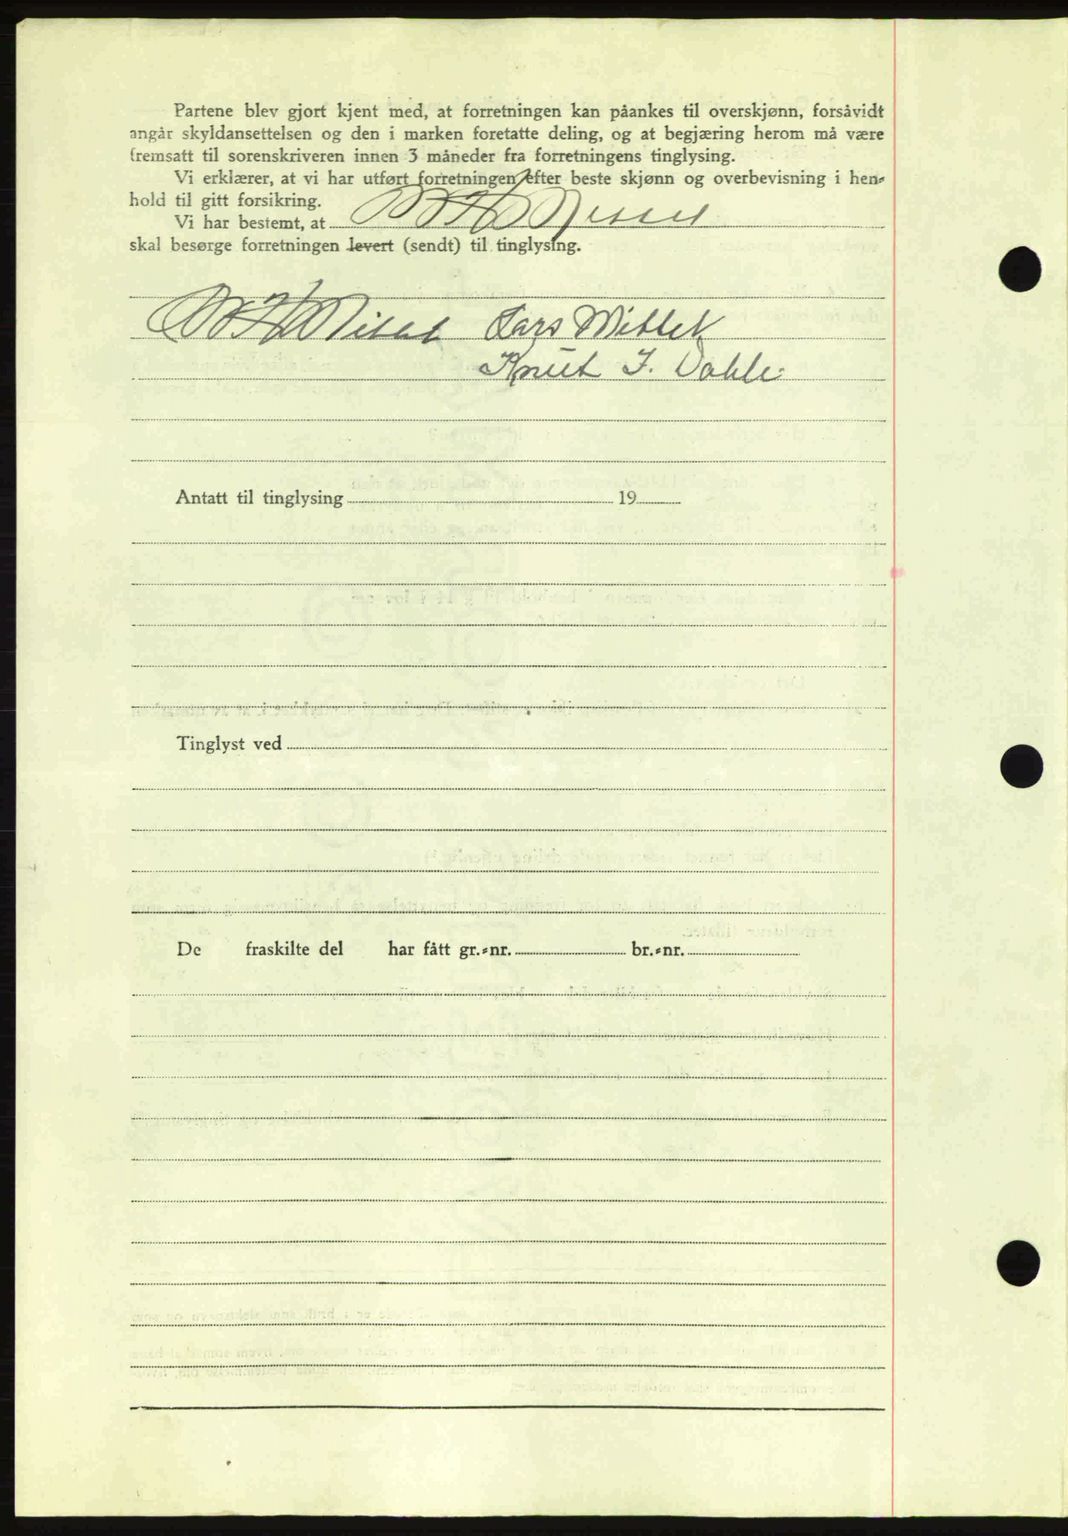 Partene blev gjort kjent med, at forretningen kan påankes til overskjønn, forsåvidt
angår skyldansettelsen og den i marken foretatte deling, og at begjæring herom må være
fremsatt til sorenskriveren innen 3 måneder fra forretningens tinglysing.
Vi erklærer, at vi har utført forretningen efter beste skjønn og overbevisning i hen-
hold til gitt forsikring.
Vi har bestemt, at
skal besørge forretningen levert (sendt) til tinglysing.
Lars Mittet
Knut J. Dahle
Antatt til tinglysing 19
Tinglyst ved
De fraskilte del har fått gr.-nr. br.-nr.